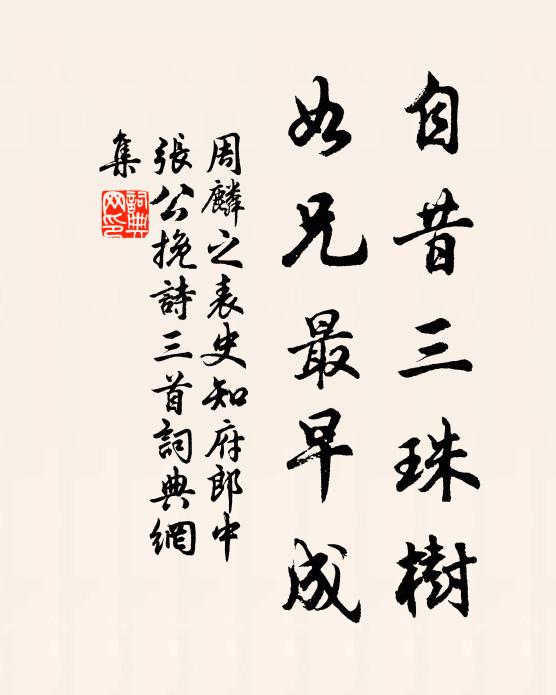 自昔三珠樹
如兄最早成
周麟之表史知府郎中
張公挽詩三首詞典網
集
詞典網印